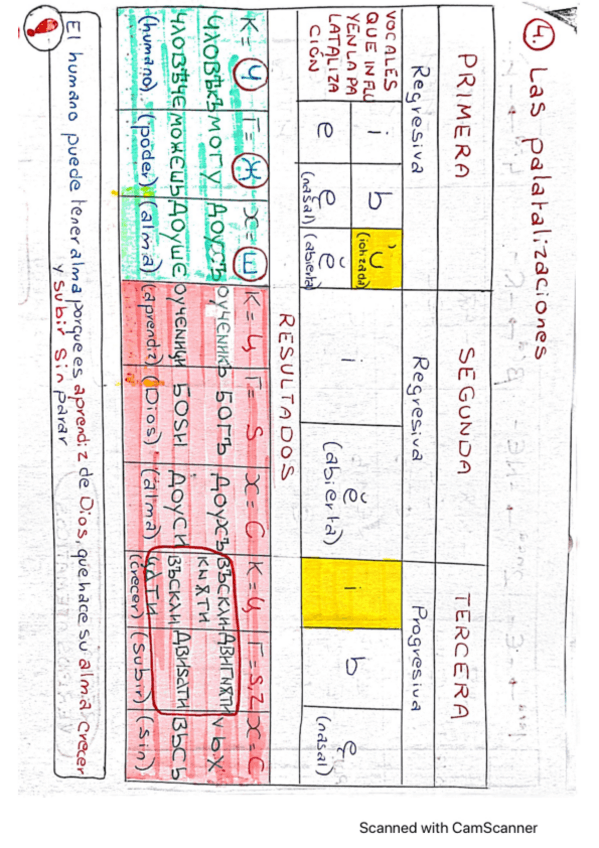 4. Las palatalizaciones
PRIMERA SEGUNDA TERCERA
Regresiva Regresiva Progresiva
VOCALES QUE INFLU
YEN LA PA
LATALIZA
CIÓN
i ь ŭ (iotizada) i ě (abierta) i ь ę (nasal)
e ę (nasal) ě (abierta)
RESULTADOS
К = Ч Г = Ж Х = Ш К = Ц Г = Ѕ Х = С К = Ц Г = Ѕ, Z Х = С
ЧЛОВѢКЪ МОГУ ДОУХЪ ОУЧЕНИКЪ БОГЪ ДОУХЪ ВЪСКЛИКНѪТИ ДВИГНѪТИ ВЬХ
ЧЛОВѢЧЕ МОЖЕШЬ ДОУШЕ ОУЧЕНИЦИ БОЅИ ДОУСИ ВЪСКЛИЦАТИ ДВИЅАТИ ВЬСЬ
(humano) (poder) (alma) (aprendiz) (Dios) (alma) (crecer) (subir) (sin)
El humano puede tener alma porque es aprendiz de Dios, que hace su alma crecer
y subir sin parar
Scanned with CamScanner